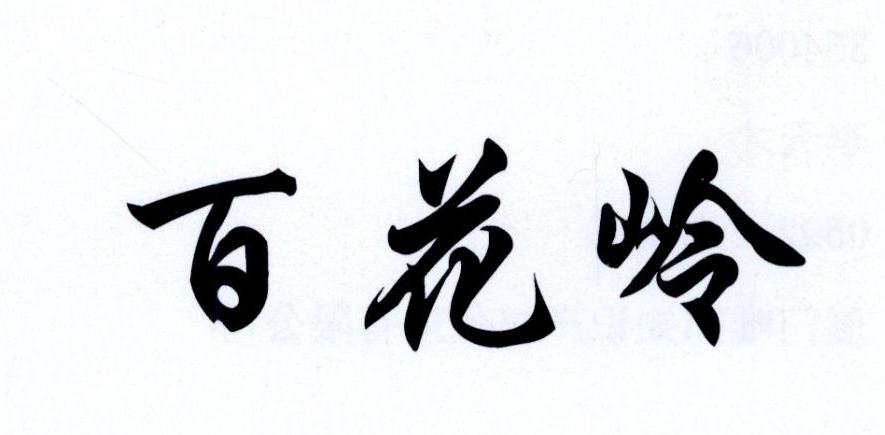 百花岭